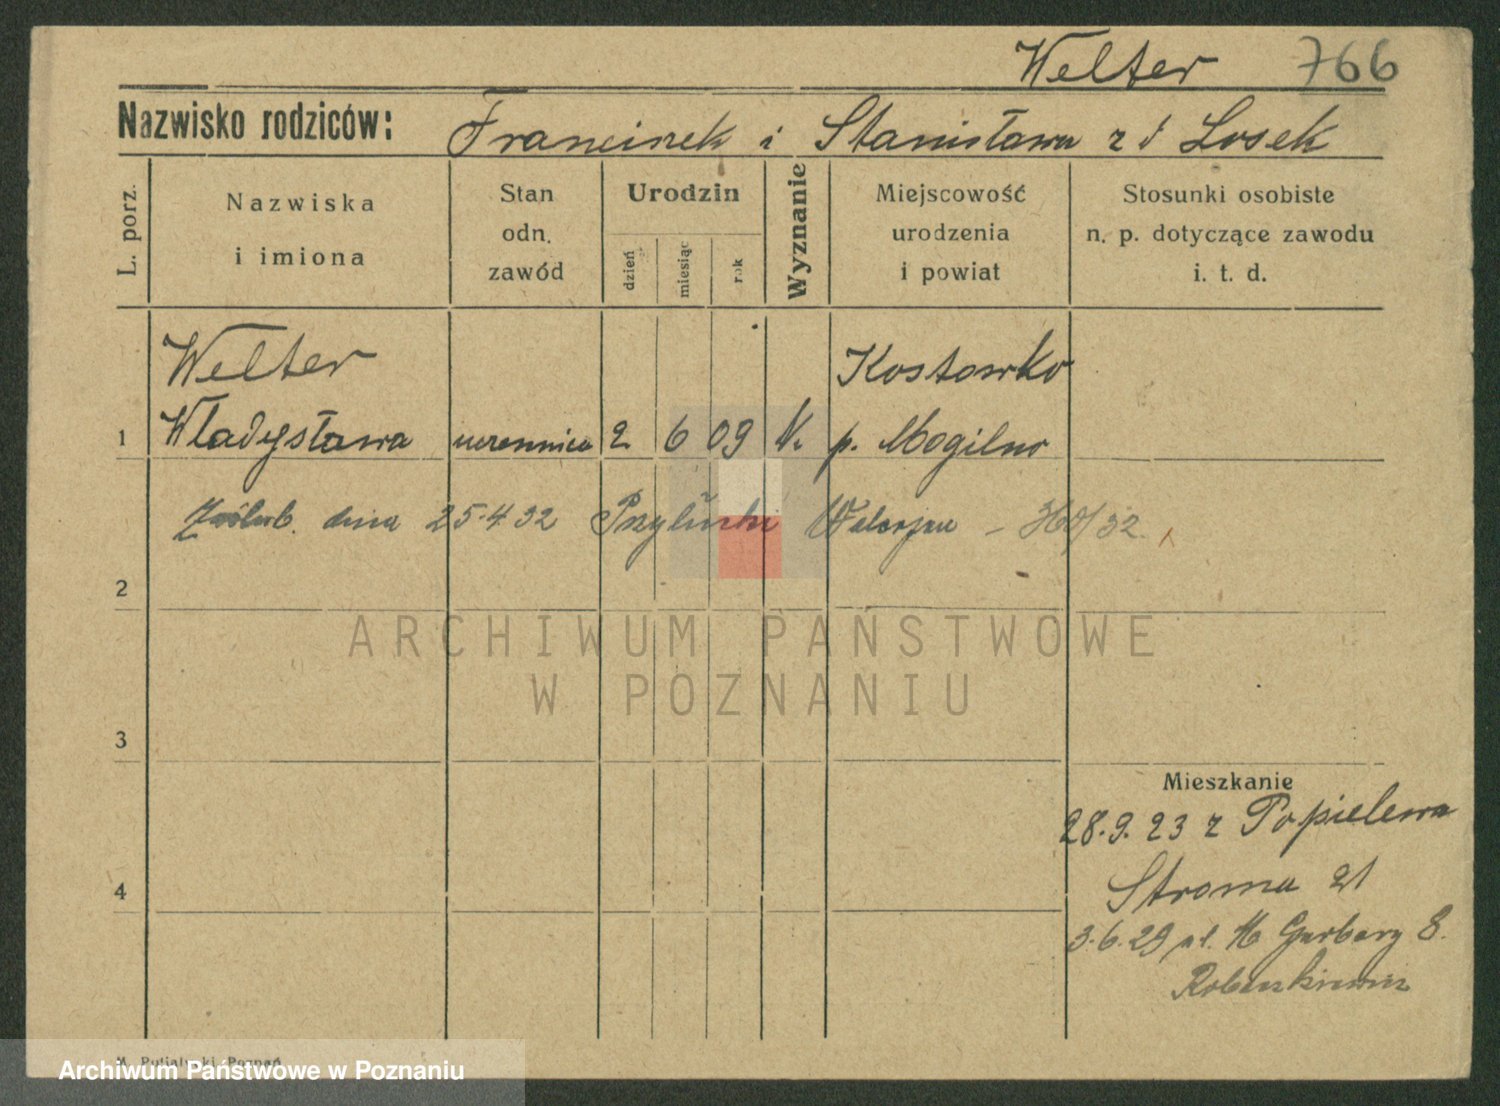 Welter 766
Nazwisko rodziców: Franciszek i Stanisława z d Losek
L. porz.
Nazwiska
i imiona
Stan
odn.
zawód
Urodzin
dzień
miesiąc
rok
Wyznanie
Miejscowość
urodzenia
i powiat
Stosunki osobiste
n. p. dotyczące zawodu
i. t. d.
Welter Kostowko
1 Władysława uczennica 2 6 09 k. p. Mogilno
dnia 25.4.32 Walerjan
2
ARCHIWUM PAŃSTWOWE
W POZNANIU
3
Mieszkanie
28.9.23 z Popielewa
4
Stroma 21
3.6.29 ul. M Garbary 8.
M. Putiatycki Poznań
Archiwum Państwowe w Poznaniu